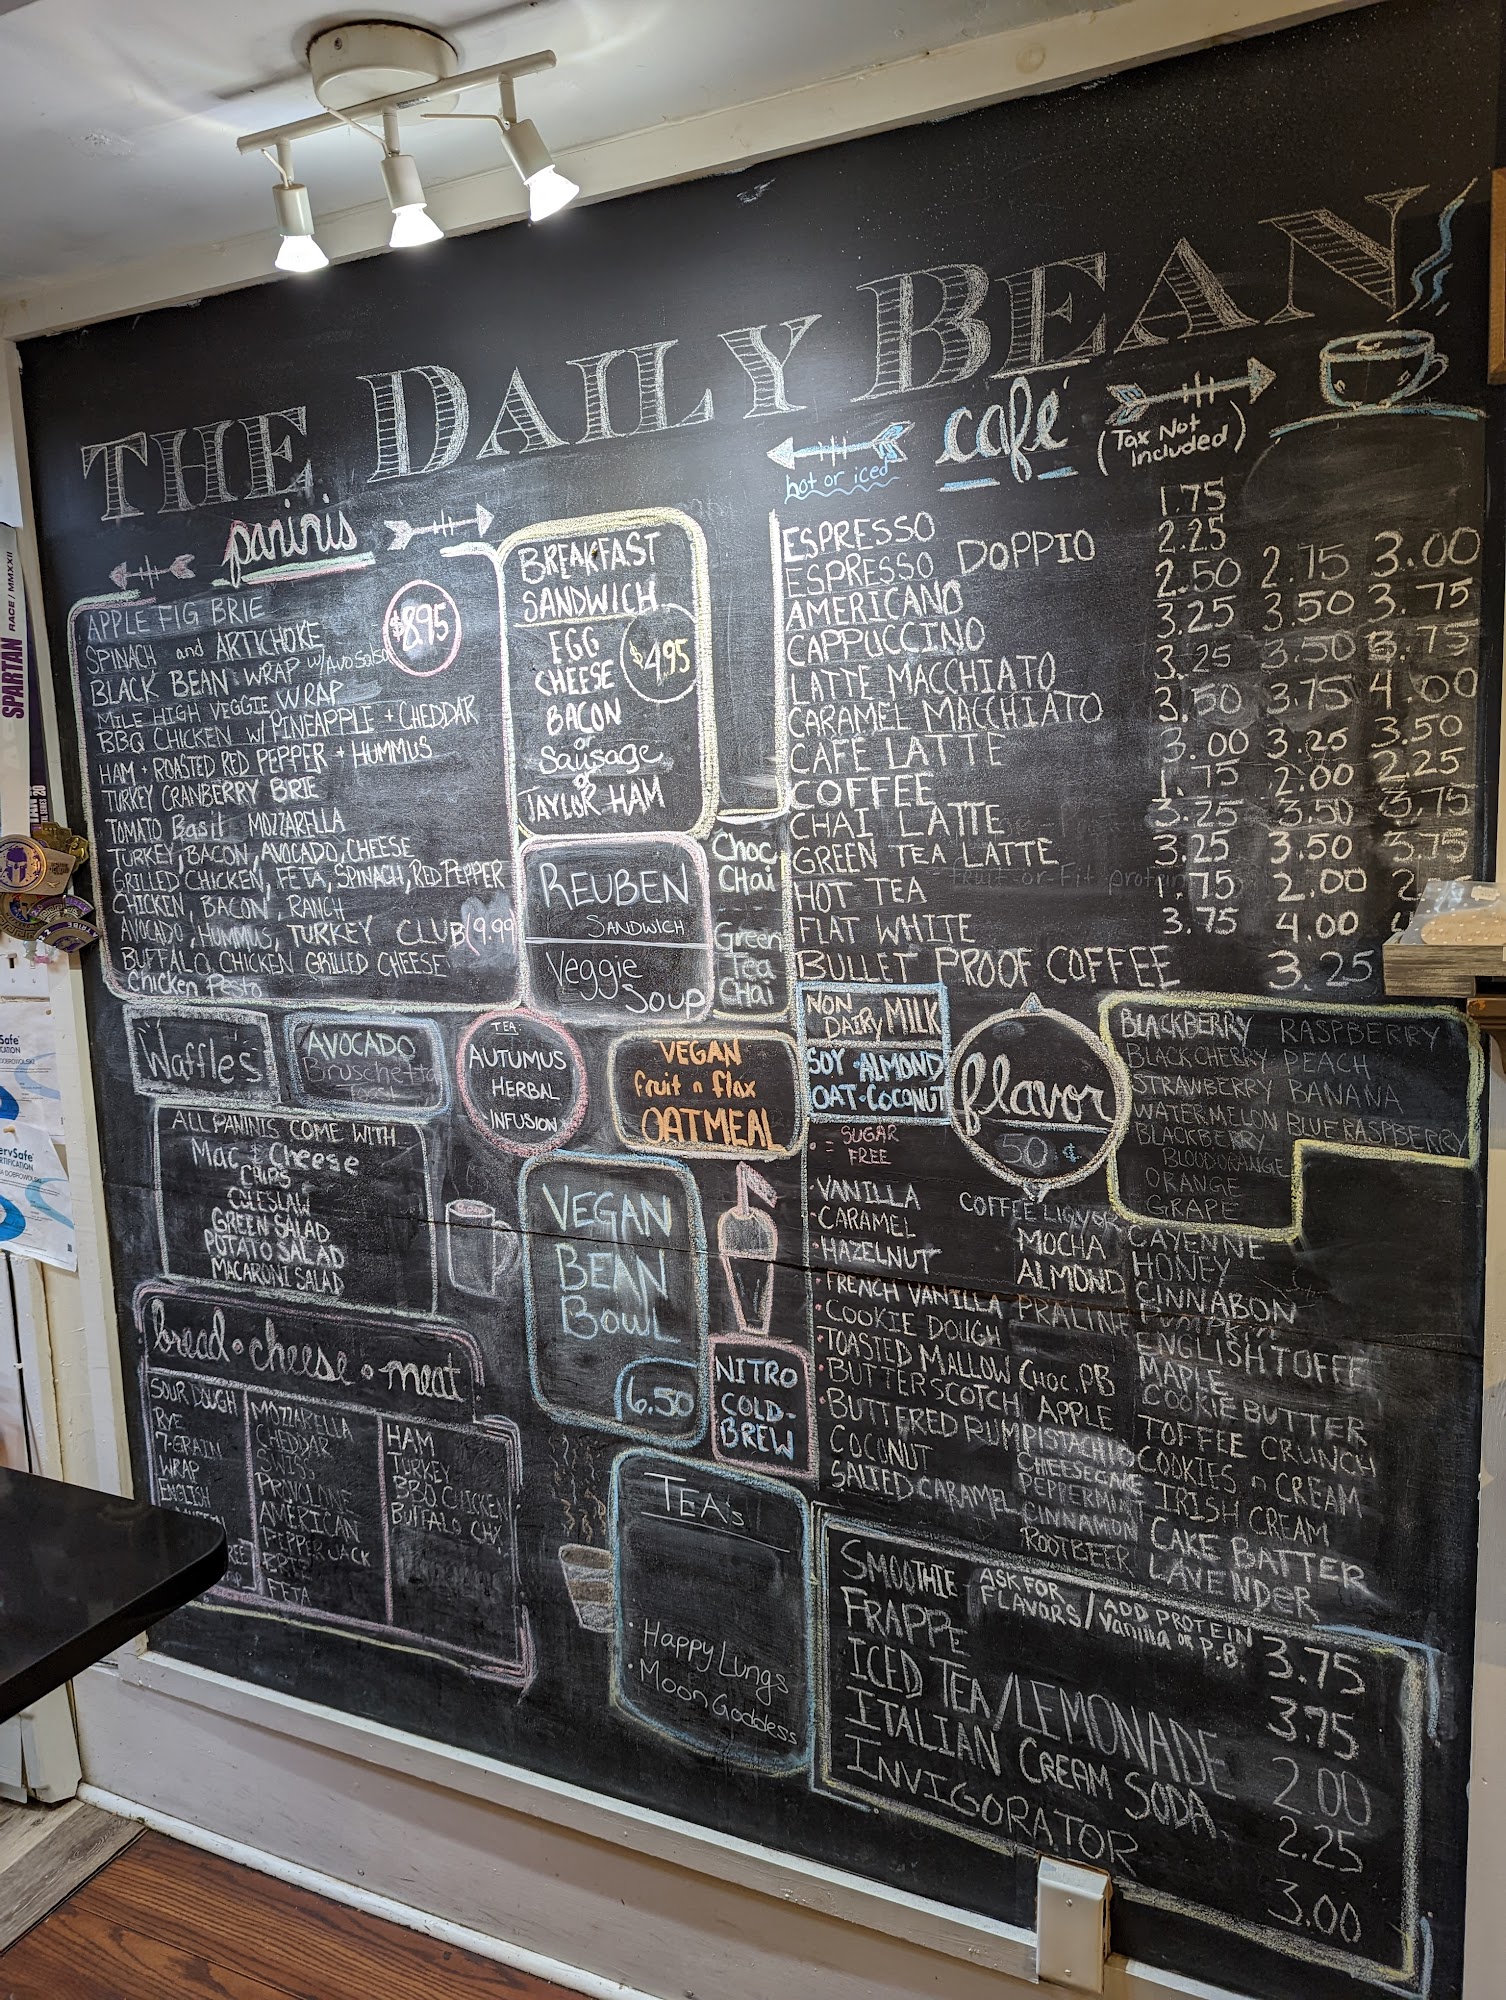 THE DAILY BEAN
paninis
APPLE FIG BRIE
SPINACH and ARTICHOKE
BLACK BEAN WRAP w/ Avo Salsa
MILE HIGH VEGGIE WRAP
BBQ CHICKEN w/ PINEAPPLE + CHEDDAR
HAM + ROASTED RED PEPPER + HUMMUS
TURKEY CRANBERRY BRIE
TOMATO Basil MOZZARELLA
TURKEY, BACON, AVOCADO, CHEESE
GRILLED CHICKEN, FETA, SPINACH, RED PEPPER
CHICKEN, BACON, RANCH
AVOCADO, HUMMUS, TURKEY CLUB (9.99
BUFFALO CHICKEN GRILLED CHEESE
Chicken Pesto
$8.95
BREAKFAST
SANDWICH
EGG
CHEESE
BACON
or
Sausage
or
TAYLOR HAM
$4.95
REUBEN
SANDWICH
Veggie
Soup
Choc
CHai
Green
Tea
CHai
café
hot or iced
(Tax Not
Included)
ESPRESSO 1.75
ESPRESSO DOPPIO 2.25
AMERICANO 2.50 2.75 3.00
CAPPUCCINO 3.25 3.50 3.75
LATTE MACCHIATO 3.25 3.50 3.75
CARAMEL MACCHIATO 3.50 3.75 4.00
CAFE LATTE 3.00 3.25 3.50
COFFEE 1.75 2.00 2.25
CHAI LATTE 3.25 3.50 3.75
GREEN TEA LATTE 3.25 3.50 3.75
HOT TEA 1.75 2.00
FLAT WHITE 3.75 4.00
BULLET PROOF COFFEE 3.25
Waffles
AVOCADO
Bruschetta
Toast
TEA:
AUTUMUS
HERBAL
INFUSION
VEGAN
fruit n flax
OATMEAL
NON
DAIRY MILK
SOY · ALMOND
OAT · COCONUT
flavor
50 ¢
BLACKBERRY RASPBERRY
BLACK CHERRY PEACH
STRAWBERRY BANANA
WATERMELON BLUE RASPBERRY
BLACKBERRY
BLOOD ORANGE
ORANGE
GRAPE
ALL PANINIS COME WITH
Mac & Cheese
CHIPS
COLESLAW
GREEN SALAD
POTATO SALAD
MACARONI SALAD
VEGAN
BEAN
BOWL
6.50
NITRO
COLD-
BREW
· = SUGAR
FREE
· VANILLA
· CARAMEL
· HAZELNUT
· FRENCH VANILLA
· COOKIE DOUGH
· TOASTED MALLOW
· BUTTERSCOTCH
· BUTTERED RUM
COCONUT
SALTED CARAMEL
COFFEE LIQUOR
MOCHA
ALMOND
PRALINE
CHOC. PB
APPLE
PISTACHIO
CHEESECAKE
PEPPERMINT
CINNAMON
ROOTBEER
CAYENNE
HONEY
CINNABON
PUMPKIN
ENGLISH TOFFE
MAPLE
COOKIE BUTTER
TOFFEE CRUNCH
COOKIES n CREAM
IRISH CREAM
CAKE BATTER
LAVENDER
bread · cheese · meat
SOUR DOUGH
RYE
7-GRAIN
WRAP
ENGLISH
MOZZARELLA
CHEDDAR
SWISS
PROVOLONE
AMERICAN
PEPPER JACK
BRIE
FETA
HAM
TURKEY
BBQ CHICKEN
BUFFALO CHX
TEAs
· Happy Lungs
· Moon Goddess
SMOOTHIE ASK FOR FLAVORS / ADD PROTEIN Vanilla OR P.B. 3.75
FRAPPE 3.75
ICED TEA/LEMONADE 2.00
ITALIAN CREAM SODA 2.25
INVIGORATOR 3.00
SPARTAN
RACE / MMXXII